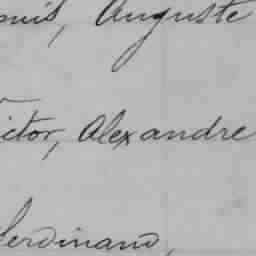 ouis, Auguste
ictor, Alexandre
Ferdinand,